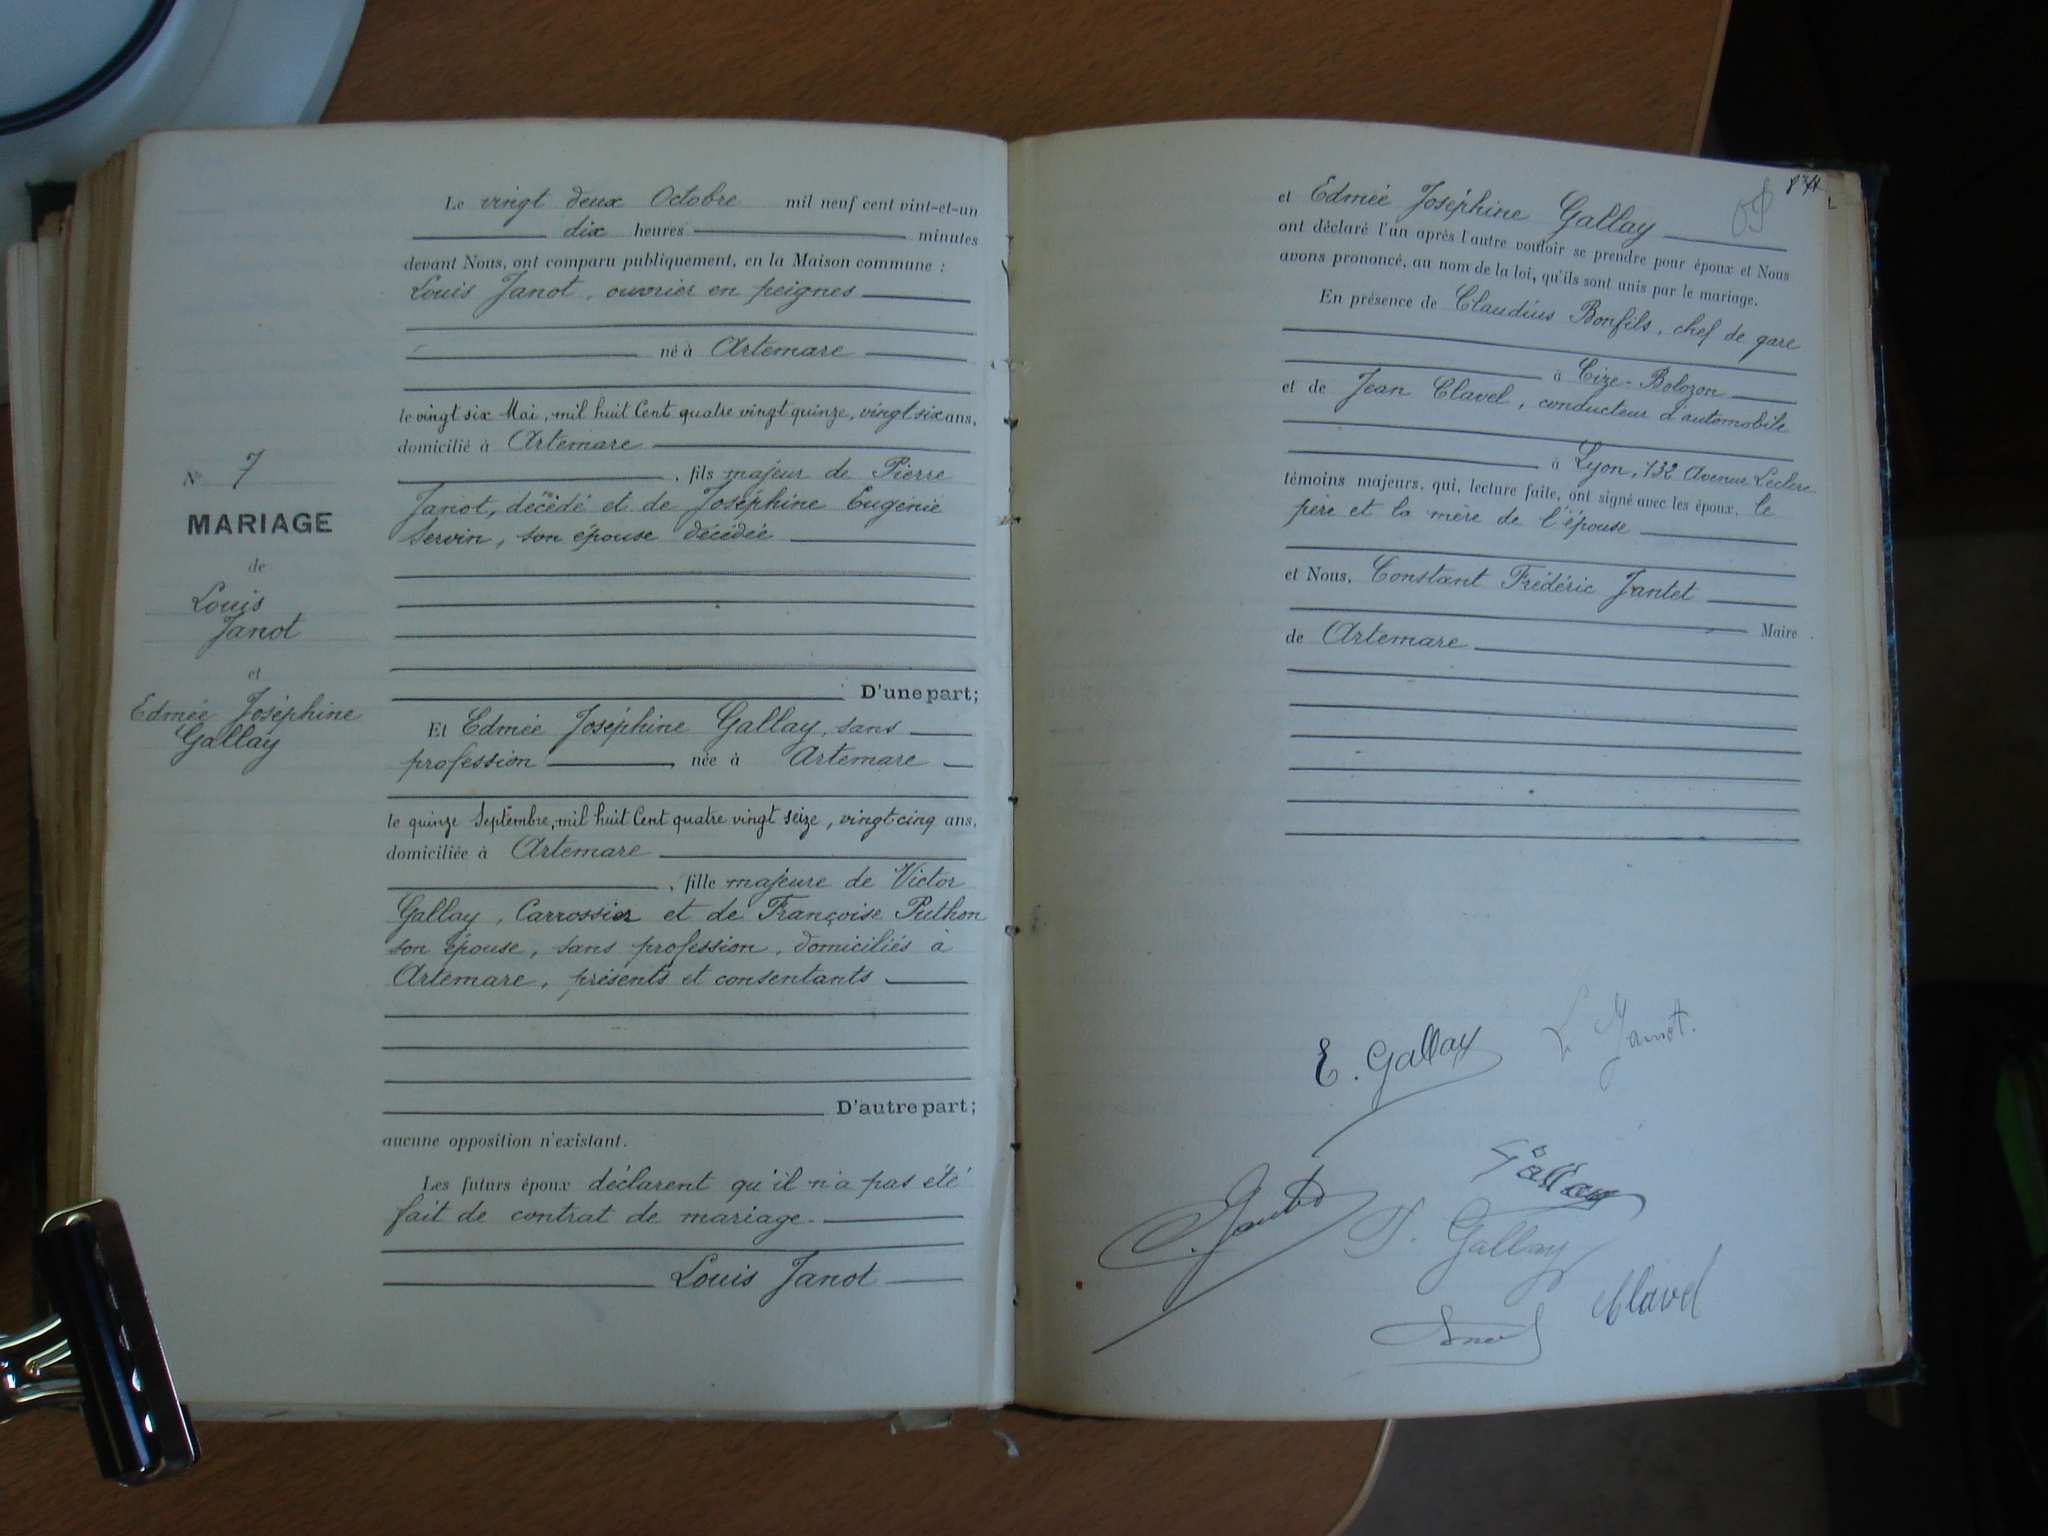 Nº 7
MARIAGE
de
Louis
Janot
et
Edmée Joséphine
Gallay
Le vingt deux Octobre mil neuf cent vint-et-un
dix heures minutes
devant Nous, ont comparu publiquement, en la Maison commune :
Louis Janot, ouvrier en peignes
né à Artemare
le vingt six Mai, mil huit Cent quatre vingt quinze, vingt six ans,
domicilié à Artemare
, fils majeur de Pierre
Janot, décédé et de Joséphine Eugénie
Servin, son épouse décédée
D'une part;
Et Edmée Joséphine Gallay, sans
profession, née à Artemare
le quinze Septembre, mil huit Cent quatre vingt seize, vingt cinq ans,
domiciliée à Artemare
, fille majeure de Victor
Gallay, Carrossier et de Françoise Puthon
son épouse, sans profession, domiciliés à
Artemare, présents et consentants
D'autre part;
aucune opposition n'existant.
Les futurs époux déclarent qu'il n'a pas été
fait de contrat de mariage.
Louis Janot
et Edmée Joséphine Gallay
ont déclaré l'un après l'autre vouloir se prendre pour époux et Nous
avons prononcé, au nom de la loi, qu'ils sont unis par le mariage.
En présence de Claudius Bonfils, chef de gare
à Cize-Bolozon
et de Jean Clavel, conducteur d'automobile
à Lyon, 132 Avenue Leclerc
témoins majeurs, qui, lecture faite, ont signé avec les époux, le
père et la mère de l'épouse
et Nous, Constant Frédéric Jantet
Maire
de Artemare
E. Gallay L Janot.
Gallay
Jantet F. Gallay
Clavel